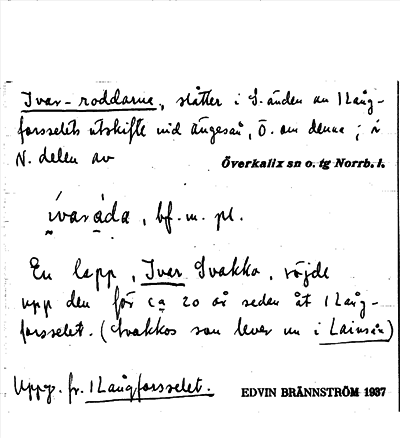 Ivar-roddarna, slåtter i S. änden av Lång-
forsselets utskifte vid Ängeså, Ö. om denna; i
N. delen av
Överkalix sn o. tg Norrb. l.
ívaràda, bf. m. pl.
En lapp, Ivar Svakko, röjde
upp den för ca 20 år sedan åt Lång-
forsselet. (Svakkos son lever nu i Lainiån)
Uppg. fr. Långforsselet.
EDVIN BRÄNNSTRÖM 1937